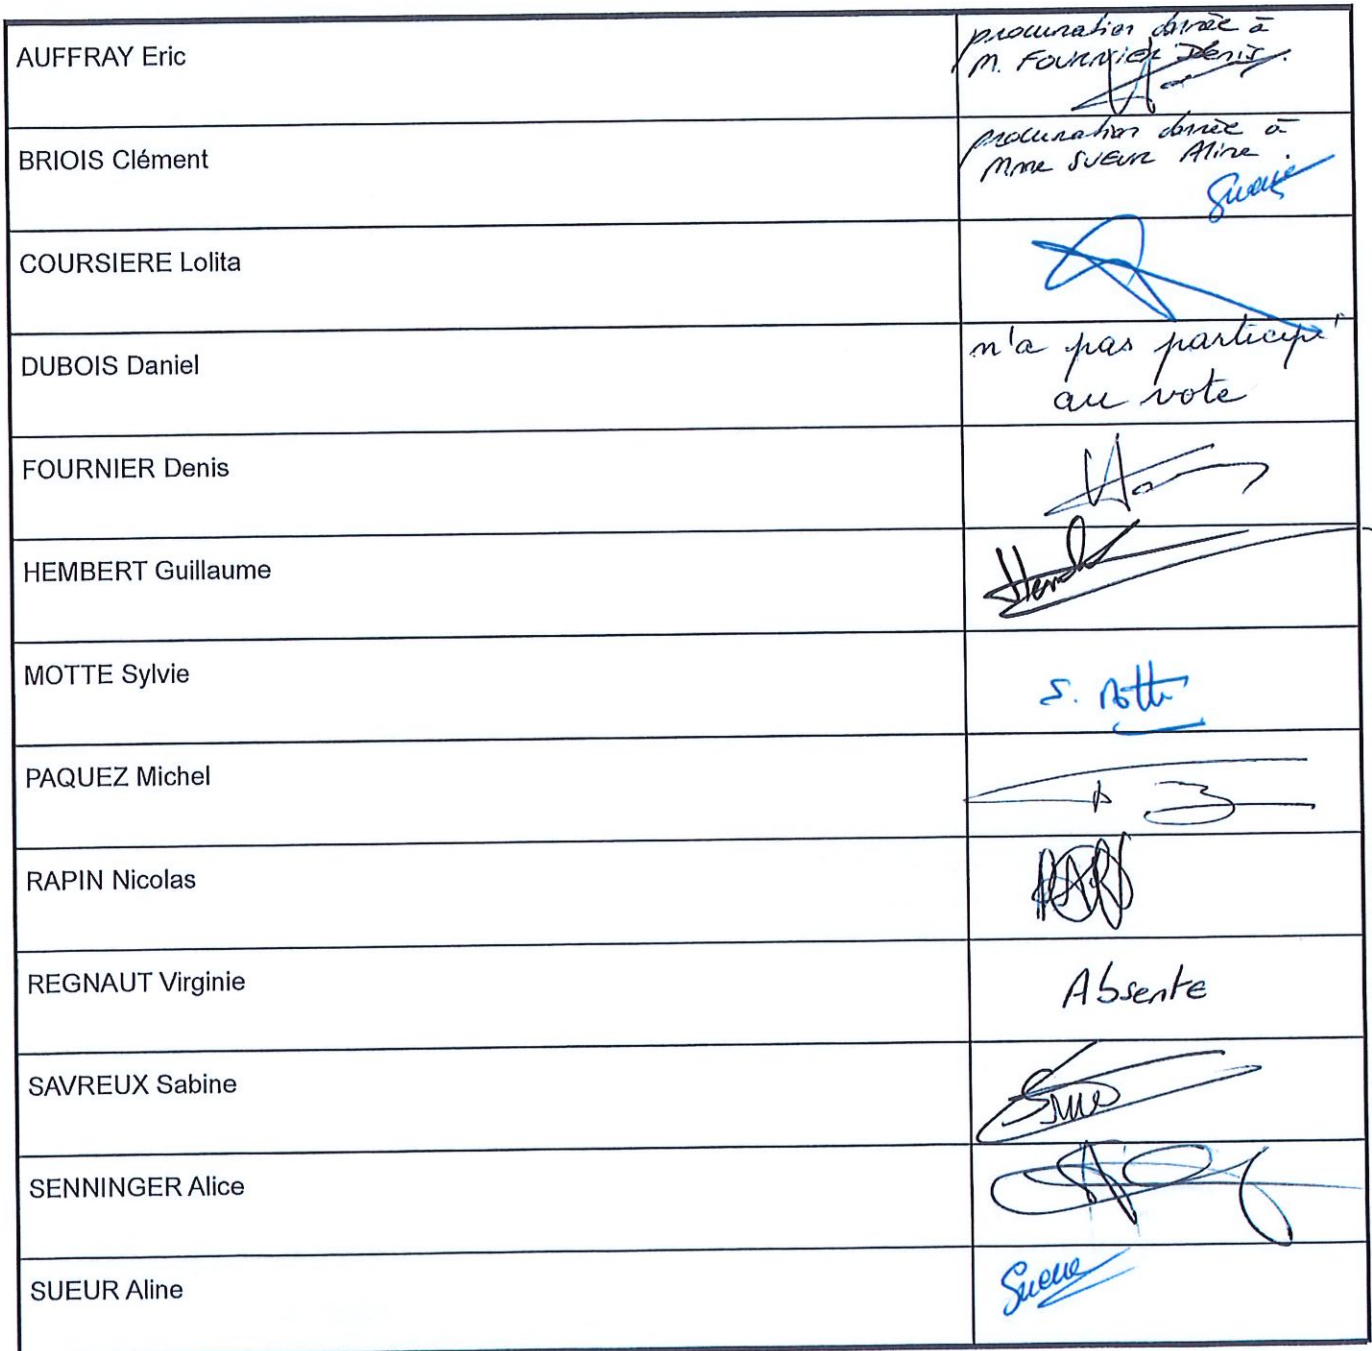 AUFFRAY Eric
procuration donnée à
M. FOURNIER Denis.
BRIOIS Clément
procuration donnée à
Mme SUEUR Aline.
Sueur
COURSIERE Lolita
DUBOIS Daniel
n'a pas participé
au vote
FOURNIER Denis
HEMBERT Guillaume
MOTTE Sylvie
S. Motte
PAQUEZ Michel
RAPIN Nicolas
REGNAUT Virginie
Absente
SAVREUX Sabine
SENNINGER Alice
SUEUR Aline
Sueur